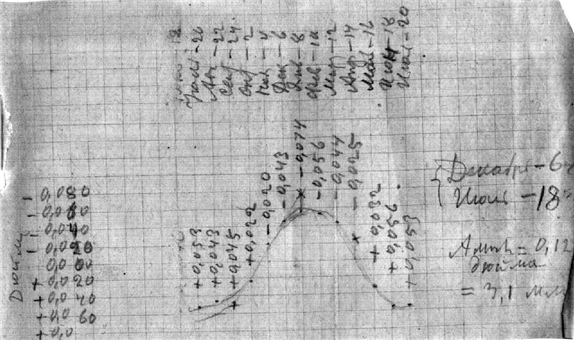 Июль – 20
Авг – 22
Сен – 24
Окт – 2
Ноя – 4
Дек – 6
Янв – 8
Фев – 10
Мар – 12
Апр – 14
Май – 16
Июн – 18
Июль – 20
+0,053
+0,043
+0,045
+0,022
-0,020
-0,043
-0,074
-0,056
-0,044
-0,025
+0,032
+0,056
+0,053
Дюймы
- 0,080
- 0,060
- 0,040
- 0,020
0,000
+ 0,020
+ 0,040
+ 0,060
+ 0,0
Декабрь – 6
Июнь – 18
Ампл = 0,12
дюйма
= 3,1 мм